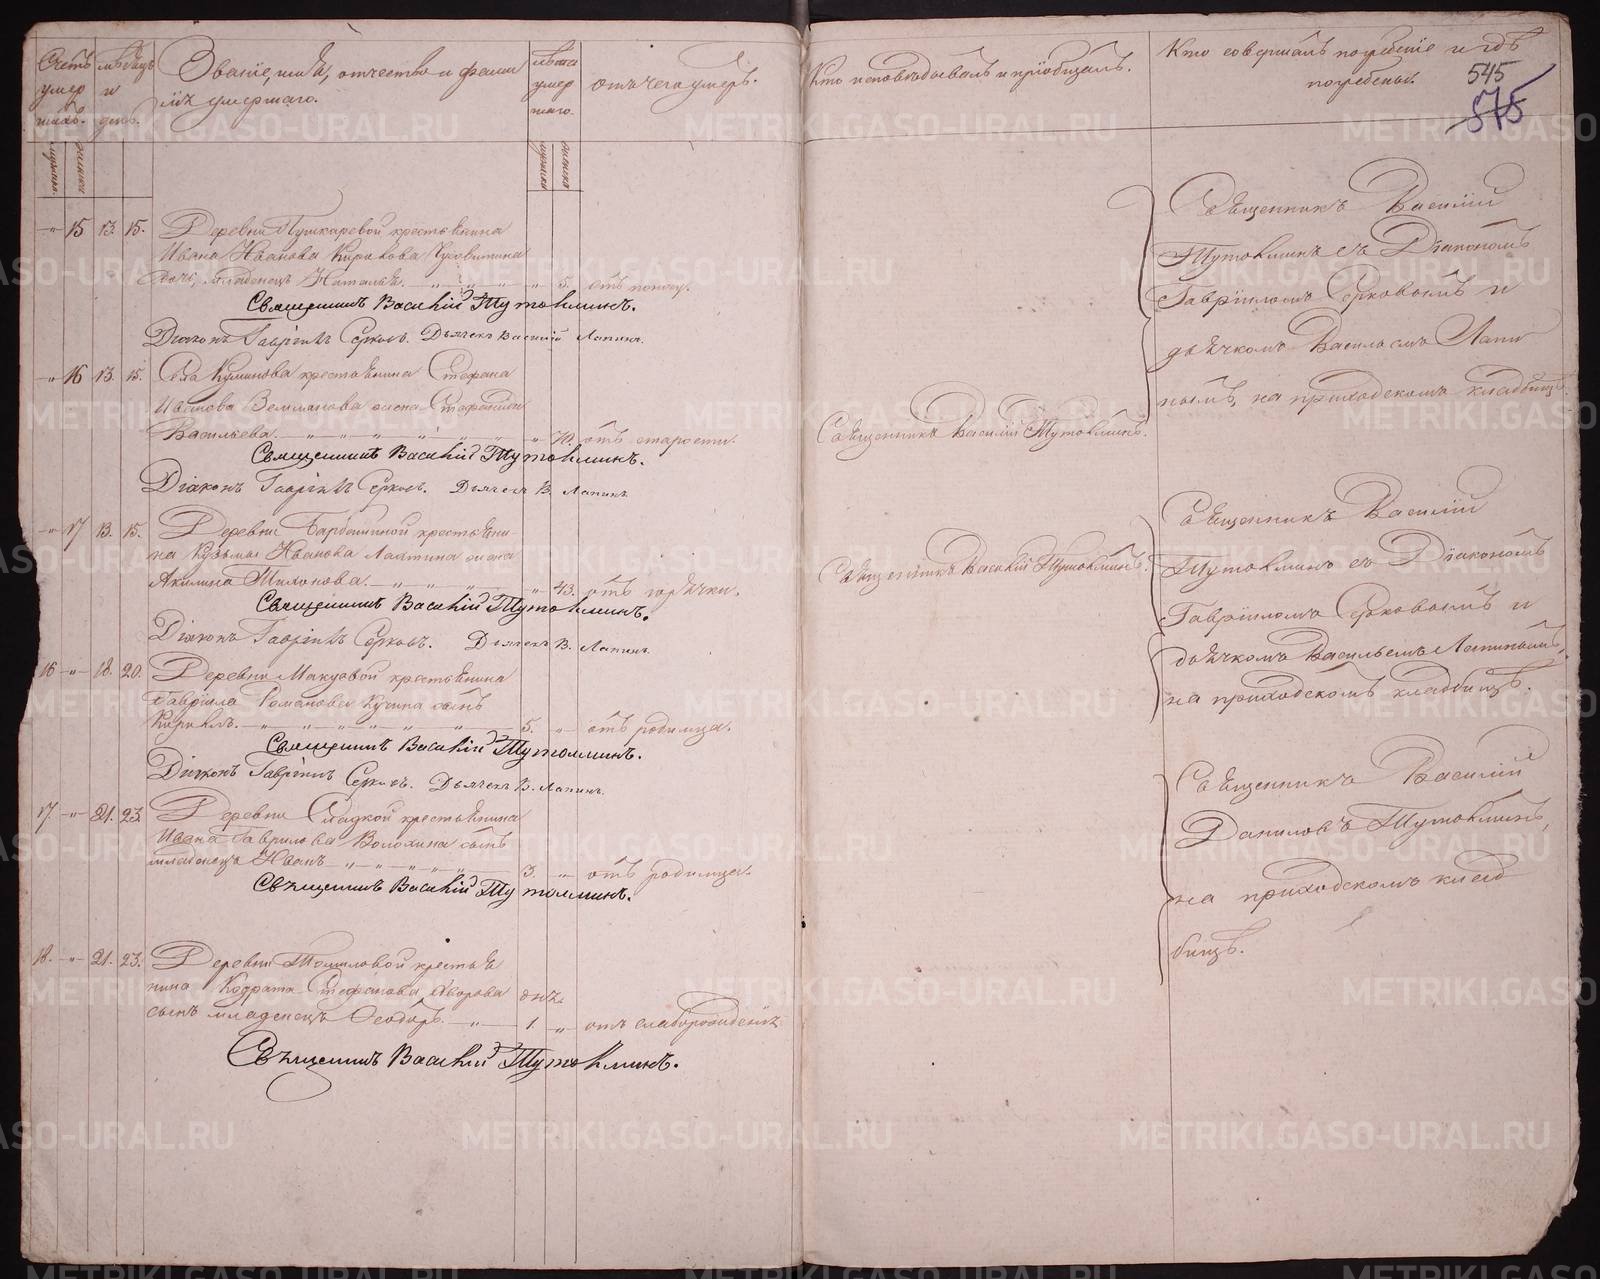 Счетъ умершихъ.
мѣсяцъ и день.
Званіе, имя, отчество и фамилія умершаго.
лѣта умершаго.
отъ чего умеръ.
Кто исповѣдывалъ и приобщалъ.
Кто совершалъ погребеніе и гдѣ погребены.
545
575
мужска
женска
мужска
женска
-"- 15 13. 15. Деревни Пушкаревой крестьянина
Ивана Иванова
дочь, младенецъ Наталья. " " " " 5. отъ поносу.
Священникъ Василій Тутолминъ.
Діаконъ Гавріилъ Серковъ. Дьячекъ Василій Лапинъ.
-"- 16 13. 15. Села крестьянина Стефана
Иванова Землянова жена Стефанида
Васильева. " 70. отъ старости.
Священникъ Василій Тутолминъ.
Діаконъ Гавріилъ Серковъ. Дьячекъ В. Лапинъ.
-"- 17 13. 15. Деревни крестьяни-
на Кузьмы Иванова жена
Акилина " 43. отъ горячки.
Священникъ Василій Тутолминъ.
Діаконъ Гавріилъ Серковъ. Дьячекъ В. Лапинъ.
16 -"- 18. 20. Деревни Макуевой крестьянина
Гавріила Романова сынъ
Кирилъ. 5. " отъ родимца.
Священникъ Василій Тутолминъ.
Діаконъ Гавріилъ Серковъ. Дьячекъ В. Лапинъ.
17. -"- 21. 23. Деревни Сладкой крестьянина
Ивана Гаврилова Волохина сынъ
младенецъ Иванъ 3. " отъ родимца.
Священникъ Василій Тутолминъ.
18. -"- 21. 23. Деревни Томиловой крестья
нина Кодрата Стефанова дня.
сынъ младенецъ Ѳеодоръ. 1. " отъ слаборожденія.
Священникъ Василій Тутолминъ.
Священникъ Василій Тутолминъ.
Священникъ Василій Тутолминъ.
Священникъ Василій
Тутолминъ съ Діакономъ
Гавріиломъ Серковымъ и
дьячкомъ Васильемъ Лапи
нымъ, на приходскомъ кладбищѣ.
Священникъ Василій
Тутолминъ съ Діакономъ
Гавріиломъ Серковымъ и
дьячкомъ Васильемъ Лапинымъ,
на приходскомъ кладбищѣ.
Священникъ Василій
Даниловъ Тутолминъ,
на приходскомъ клад
бищѣ.
METRIKI.GASO-URAL.RU